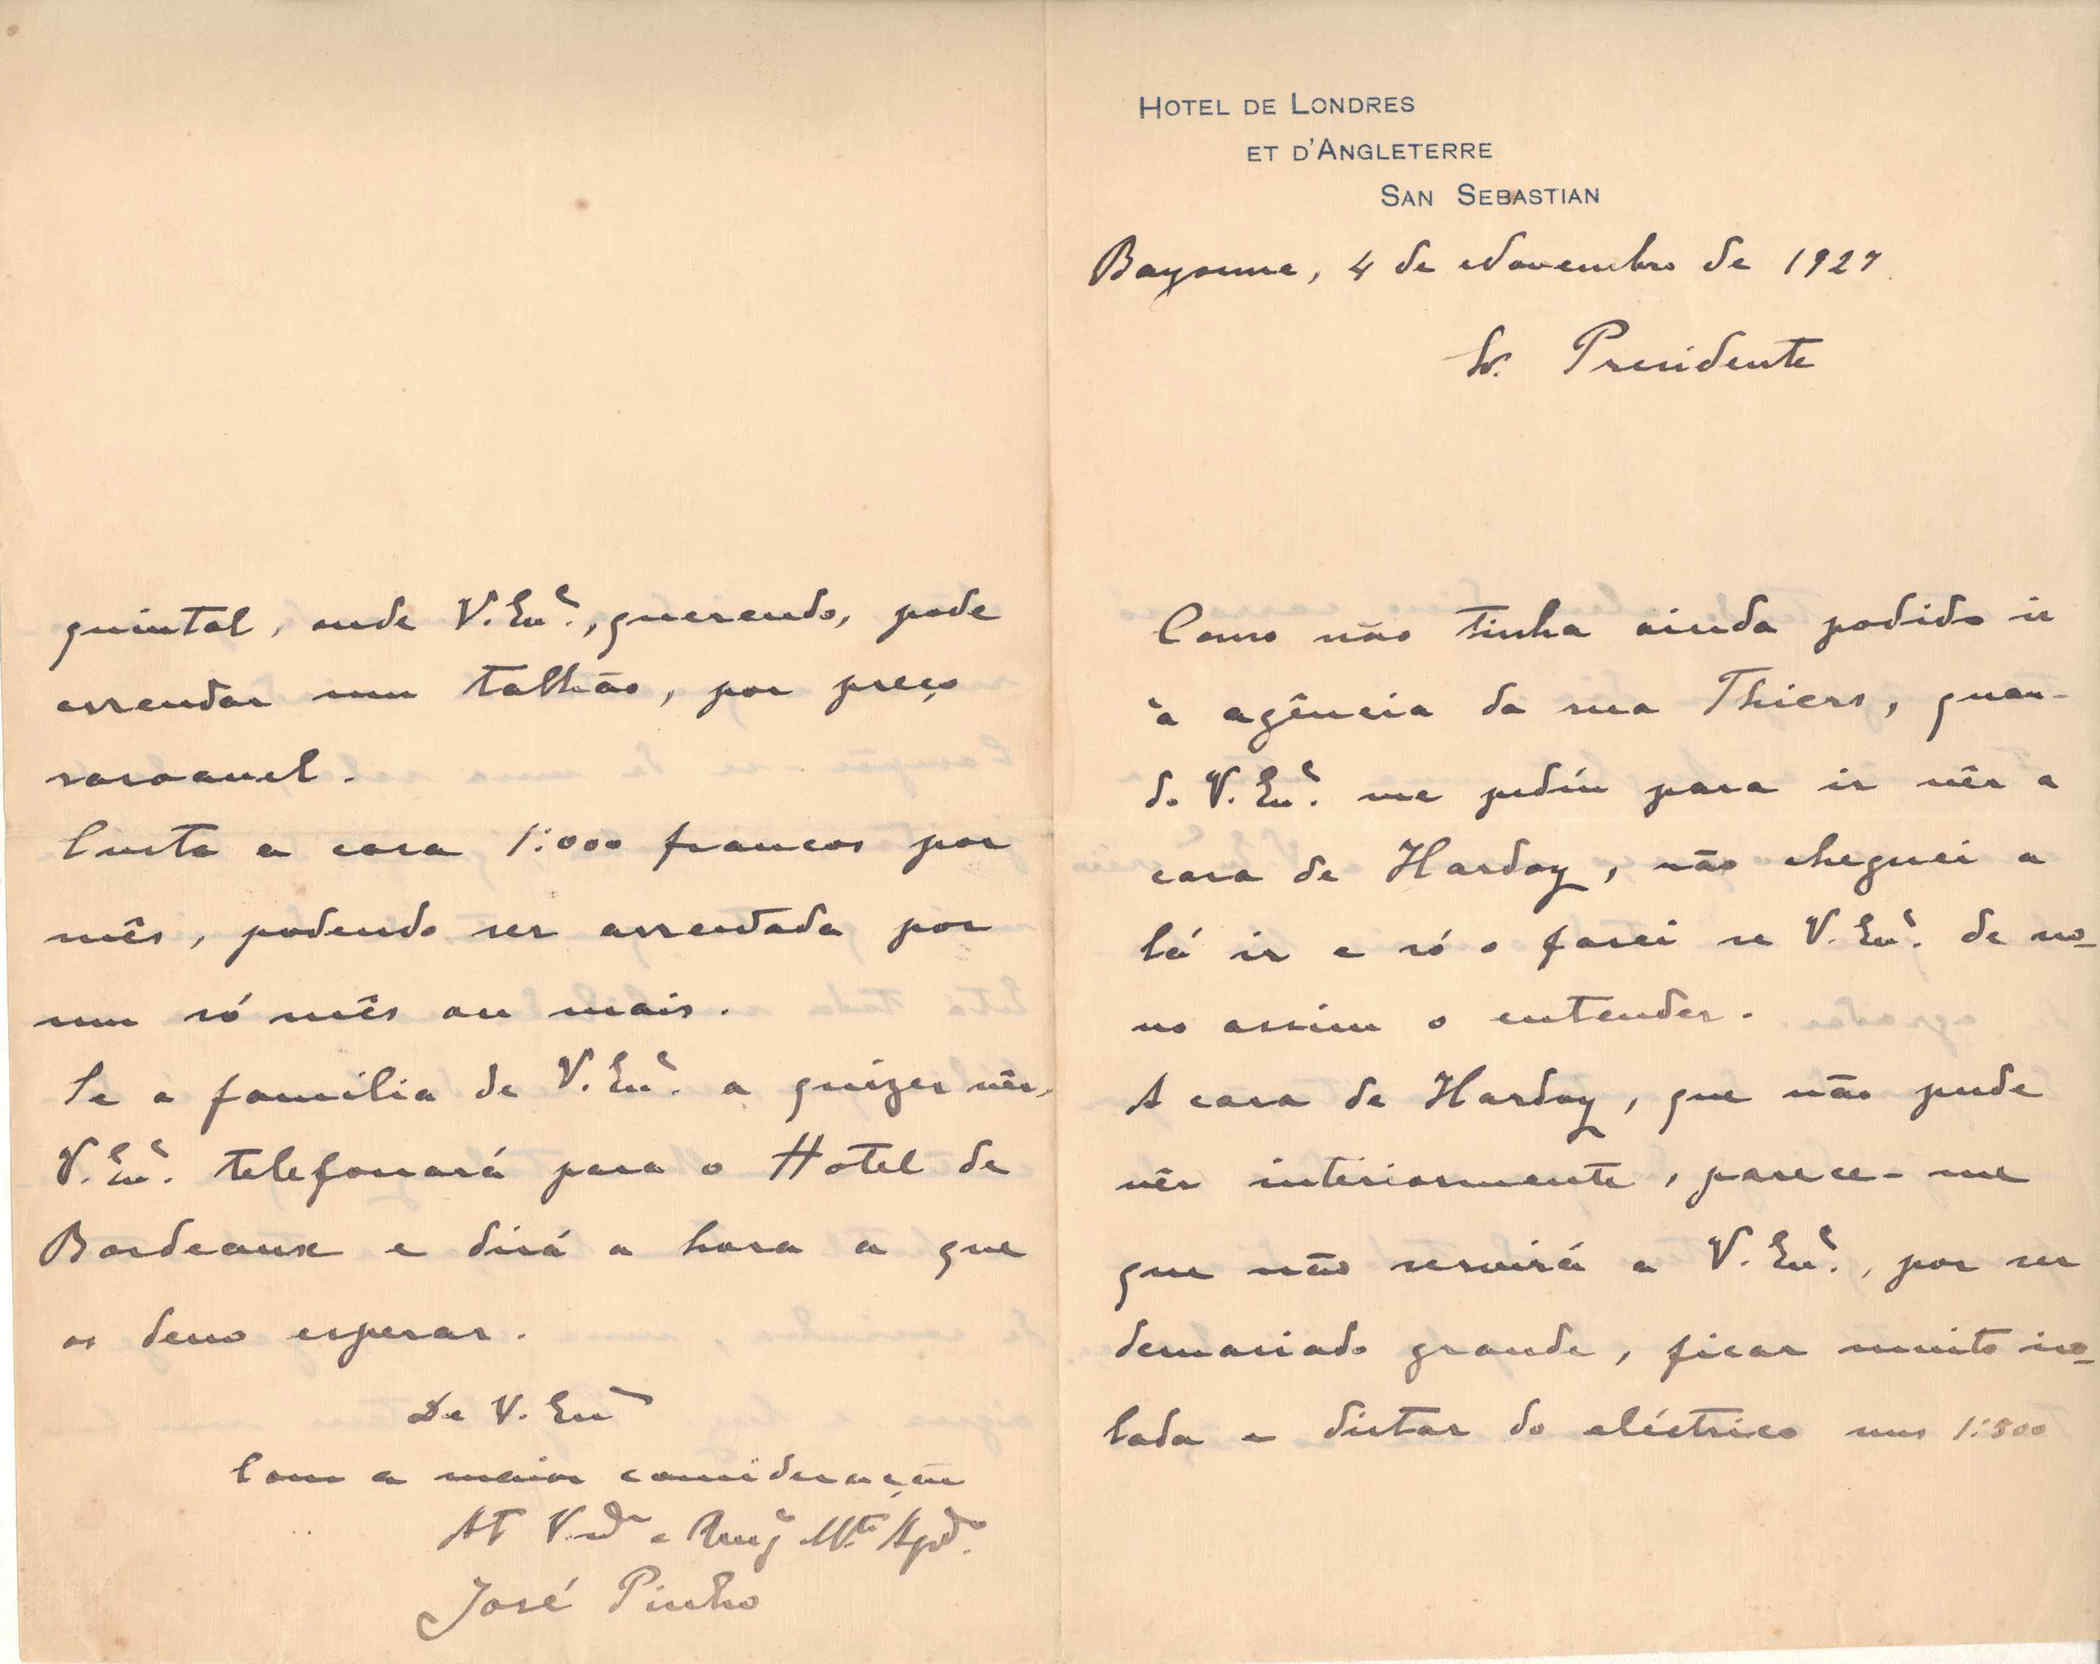 HOTEL DE LONDRES
ET D'ANGLETERRE
SAN SEBASTIAN
Bayonne, 4 de Novembro de 1927
Sr. Presidente
Como não tinha ainda podido ir
à agência da rua Thiers, quan-
do V. Exª. me pediu para ir vêr a
casa de Hardoy, não cheguei a
lá ir e só o farei se V. Exª. de no-
vo assim o entender.
A casa de Hardoy, que não pude
vêr interiormente, parece-me
que não servirá a V. Exª., por ser
demasiado grande, ficar muito iso-
lada e distar do eléctrico uns 1:800
quintal, onde V. Exª., querendo, pode
arrendar um talhão, por preço
rasoavel.
Custa a casa 1:000 francos por
mês, podendo ser arrendada por
um só mês ou mais.
Se a familia de V. Exª. a quizer vêr,
V. Exª. telefonará para o Hotel de
Bordeaux e dirá a hora a que
os devo esperar.
De V. Exª
Com a maior consideração
At Vndr e Amg Mto Agrdº.
José Pinho